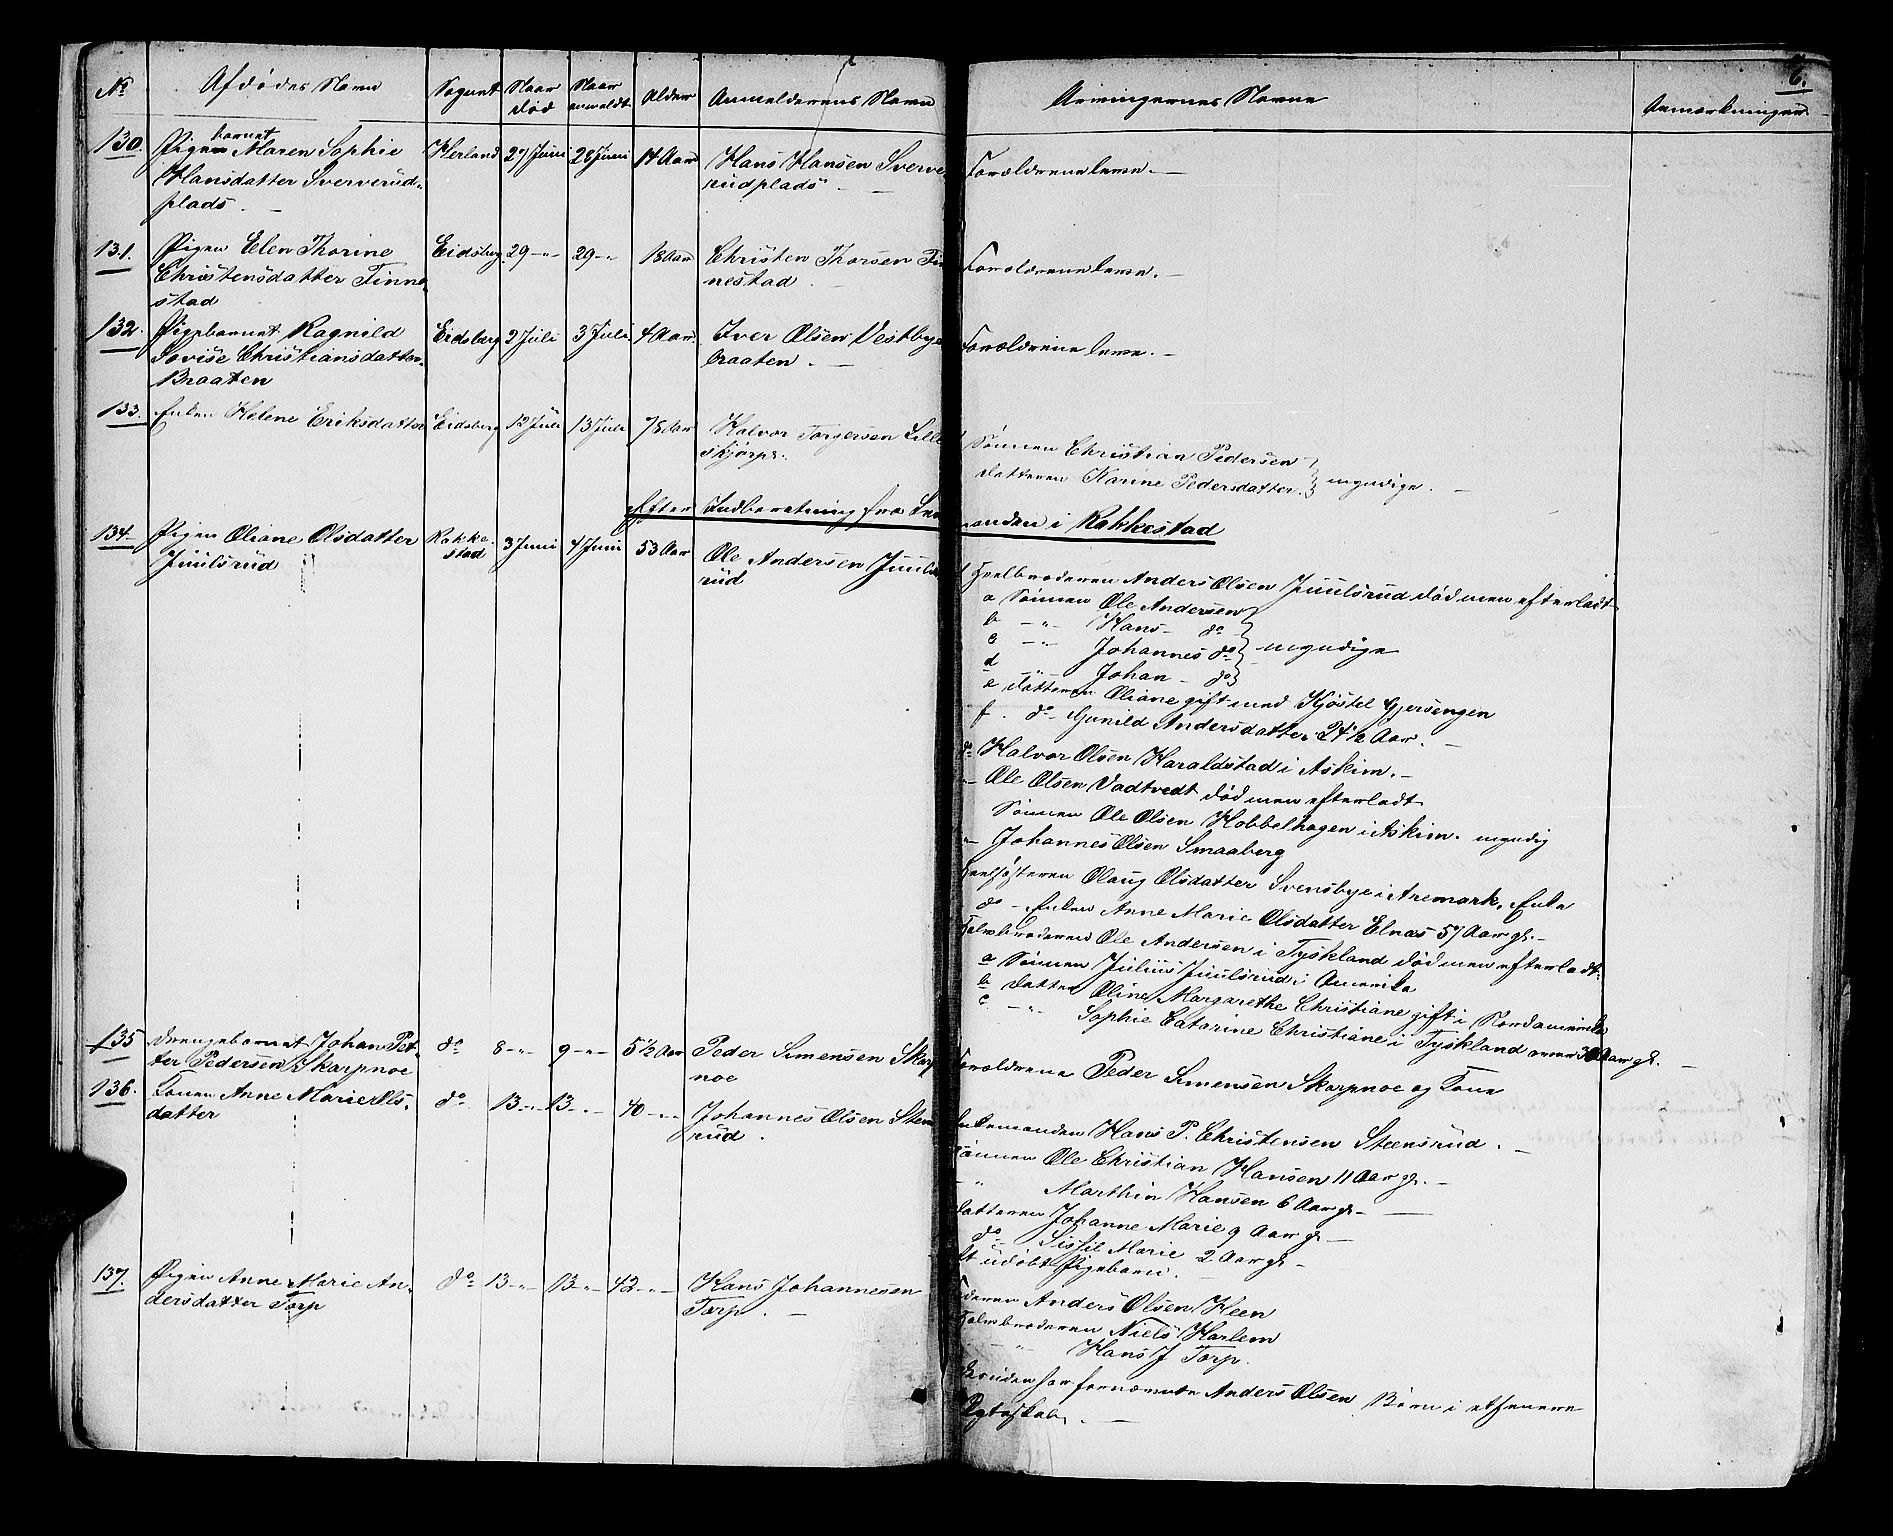 6.
No Afdødes Navn Sognet Naar død Naar anmeldt Alder Anmelderens Navn Arvingernes Navne Anmærkninger
130. Pigebarnet Maren Sophie Herland 27 Juni 28 Juni 14 Aar Hans Hansen Sverve Forældrene leve. —
Hansdatter Sververud- rudplads —
plads. —
131. Pigen Elen Thorine Eidsberg 29 -"- 29 -"- 18 Aar Christen Thorsen Fin Forældrene leve. —
Christensdatter Finne- nestad.
stad
132. Pigebarnet Ragnild Eidsberg 2 Juli 3 Juli 4 Aar Iver Olsen Vestbye Forældrene leve. —
Lovise Christiansdatter braaten. —
Braaten
133. Enken Helene Eriksdatter Eidsberg 12 Juli 13 Juli 78 Aar Halvor Torgersen Lille
skjørpe. Sønnen Christian Pedersen
Datteren Karine Pedersdatter } myndige. —
Efter Indberetning fra Lensmanden i Rakkestad
134. Pigen Oliane Olsdatter Rakke- 3 Juni 4 Juni 53 Aar Ole Andersen Juuls
Juulsrud stad rud
Heelbroderen Anders Olsen Juulsrud død men efterladt
a Sønnen Ole Andersen
b -"- Hans - do
c -"- Johannes do } myndige
d -"- Johan - do
e Datteren Oliane gift med Kjøstel Gjersengen
f. do Gunild Andersdatter 24 ½ Aar. —
do Halvor Olsen Haraldstad i Askim. —
- Ole Olsen Vadtvedt død men efterladt
Sønnen Ole Olsen Kobbelhagen i Askim. myndig
"- Johannes Olsen Smaaberg
Heelsøsteren Olaug Olsdatter Svensbye i Aremark, Enke
do - Enken Anne Marie Olsdatter Elnæs 57 Aar gl. —
Halvbroderen Ole Andersen i Tyskland død men efterladt
a Sønnen Julius Juulsrud i Amerika
b Datter Oline Margarethe Christiane gift i Nordamerika
c -"- Sophie Catarine Christiane i Tyskland over 30 Aar gl. —
135 Drengebarnet Johan Pet- do 8 -"- 9 -"- 5½ Aar Peder Simensen Skarp Forældrene Peder Simensen Skarpnoe og Kone
ter Pedersen Skarpnoe noe
136. Konen Anne Marie Ols- do 13 -"- 13 -"- 40 -"- Johannes Olsen Sten
datter rud.
Enkemanden Hans P. Christensen Steensrud. —
Sønnen Ole Christian Hansen 11 Aar gl. —
" Marthin Hansen 6 Aar gl. —
Datteren Johanne Marie 9 Aar gl —
do Sissil Marie 2 Aar gl —
Et udøbt Pigebarn.
137. Pigen Anne Marie An- do 13 -"- 13 -"- 42 -"- Hans Johannesen
dersdatter Torp Torp. —
Faderen Anders Olsen Heen
Halvbroderen Niels Harlem
" Hans J Torp.
Desuden har fornævnte Anders Olsen Børn i et senere
Ægteskab. —